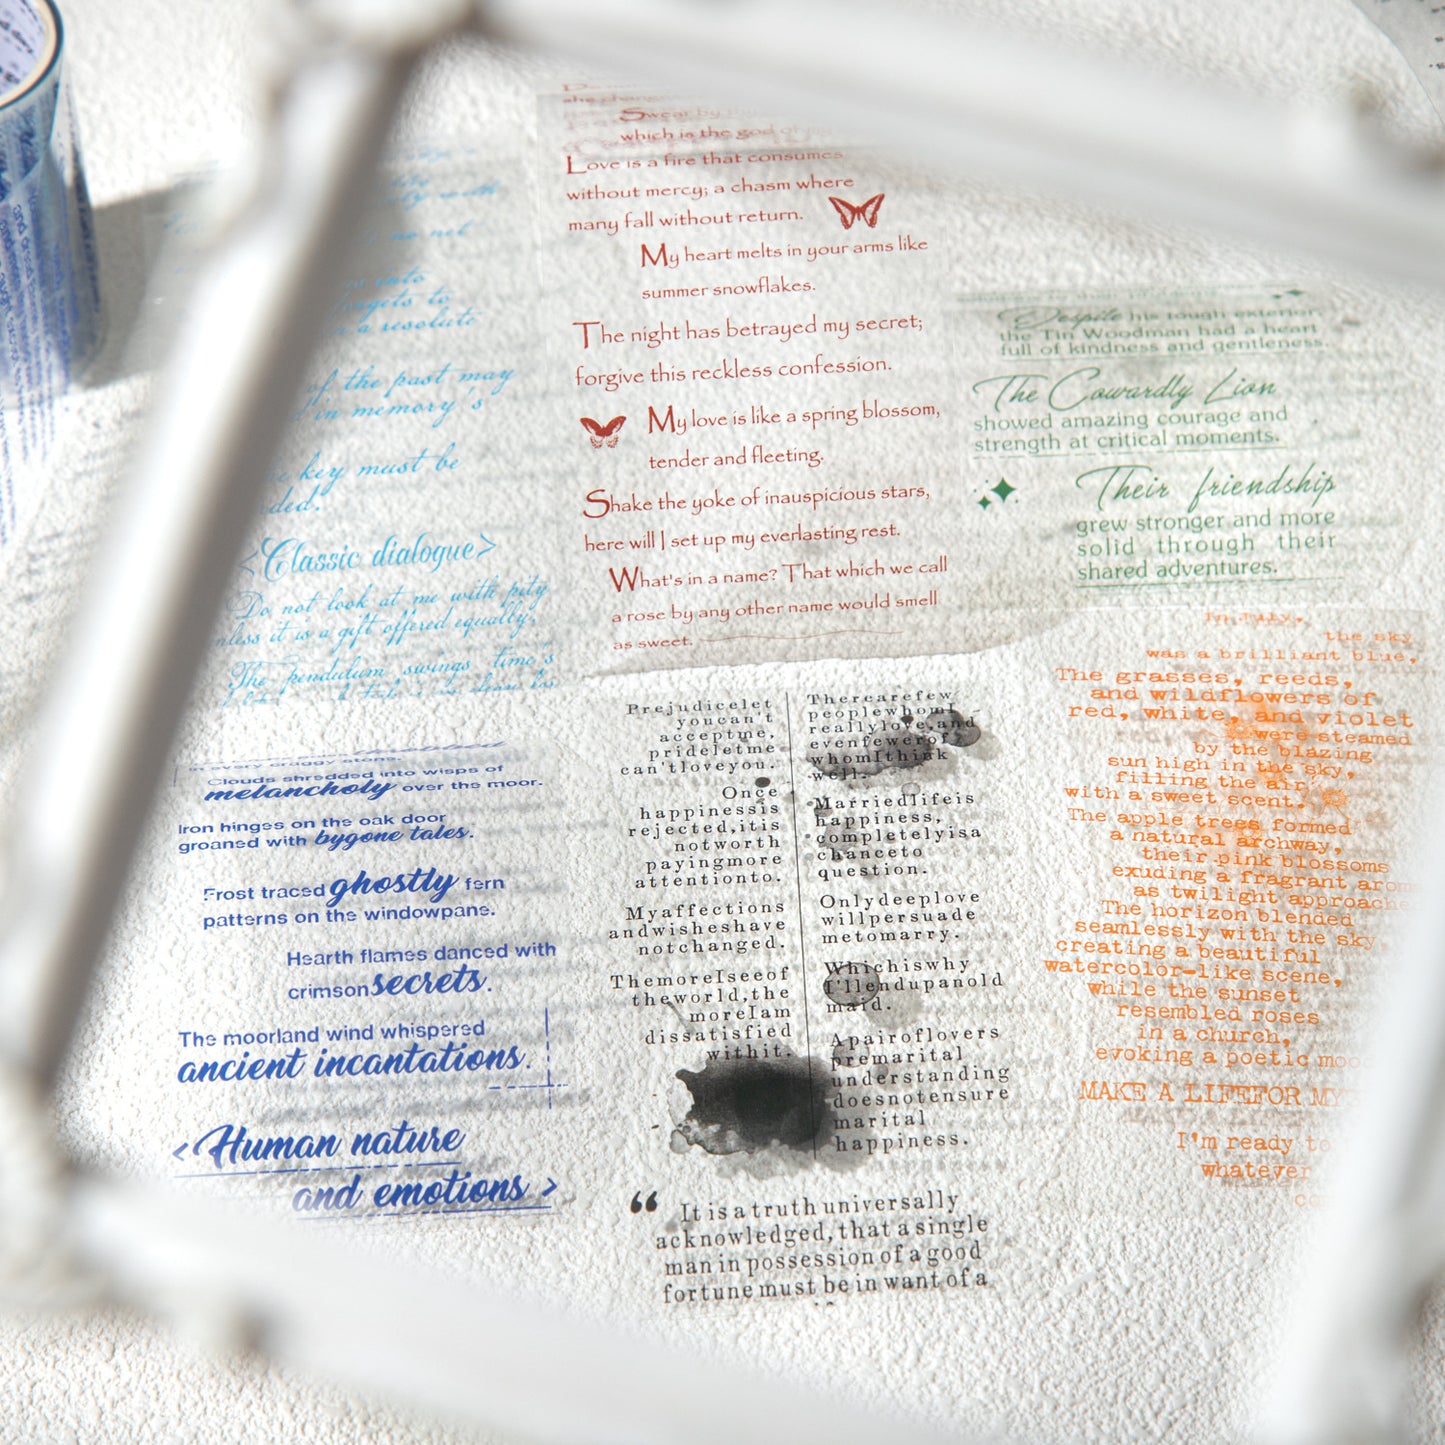 no net
into
forgets to
a resolute
of the past may
in memory's
key must be
<Classic dialogue>
Do not look at me with pity
it is a gift offered equally,
The pendulum swings time's
she
Swear by
which is the god of
Love is a fire that consumes
without mercy; a chasm where
many fall without return.
My heart melts in your arms like
summer snowflakes.
The night has betrayed my secret;
forgive this reckless confession.
My love is like a spring blossom,
tender and fleeting.
Shake the yoke of inauspicious stars,
here will I set up my everlasting rest.
What's in a name? That which we call
a rose by any other name would smell
as sweet.
Despite his tough exterior,
the Tin Woodman had a heart
full of kindness and gentleness.
The Cowardly Lion
showed amazing courage and
strength at critical moments.
Their friendship
grew stronger and more
solid through their
shared adventures.
in every craggy stone.
Clouds shredded into wisps of
melancholy over the moor.
Iron hinges on the oak door
groaned with bygone tales.
Frost traced ghostly fern
patterns on the windowpane.
Hearth flames danced with
crimson secrets.
The moorland wind whispered
ancient incantations.
<Human nature
and emotions>
Prejudicelet
youcan't
acceptme,
prideletme
can'tloveyou.
Once
happinessis
rejected,itis
notworth
payingmore
attentionto.
Myaffections
andwisheshave
notchanged.
ThemoreIseeof
theworld,the
moreIam
dissatisfied
withit.
Therearefew
peoplewhomI
reallylove,and
evenfewerof
whomIthink
well.
Marriedlifeis
happiness,
completelyisa
chanceto
question.
Onlydeeplove
willpersuade
metomarry.
Whichiswhy
I'llendupanold
maid.
Apairoflovers
premarital
understanding
doesnotensure
marital
happiness.
“ It is a truth universally
acknowledged, that a single
man in possession of a good
fortune must be in want of a
In July,
the sky
was a brilliant blue,
The grasses, reeds,
and wildflowers of
red, white, and violet
were steamed
by the blazing
sun high in the sky,
filling the air
with a sweet scent.
The apple trees formed
a natural archway,
their pink blossoms
exuding a fragrant
as twilight approached
The horizon blended
seamlessly with the sky
creating a beautiful
watercolor-like scene,
while the sunset
resembled roses
in a church,
evoking a poetic
MAKE A LIFEFOR
I'm ready
whatever